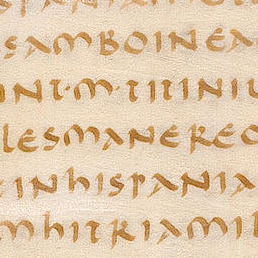 SAMBOINEA
INT·M·TITINIU
LESMANEREO
INHISPANIA
MHITRIAMIL